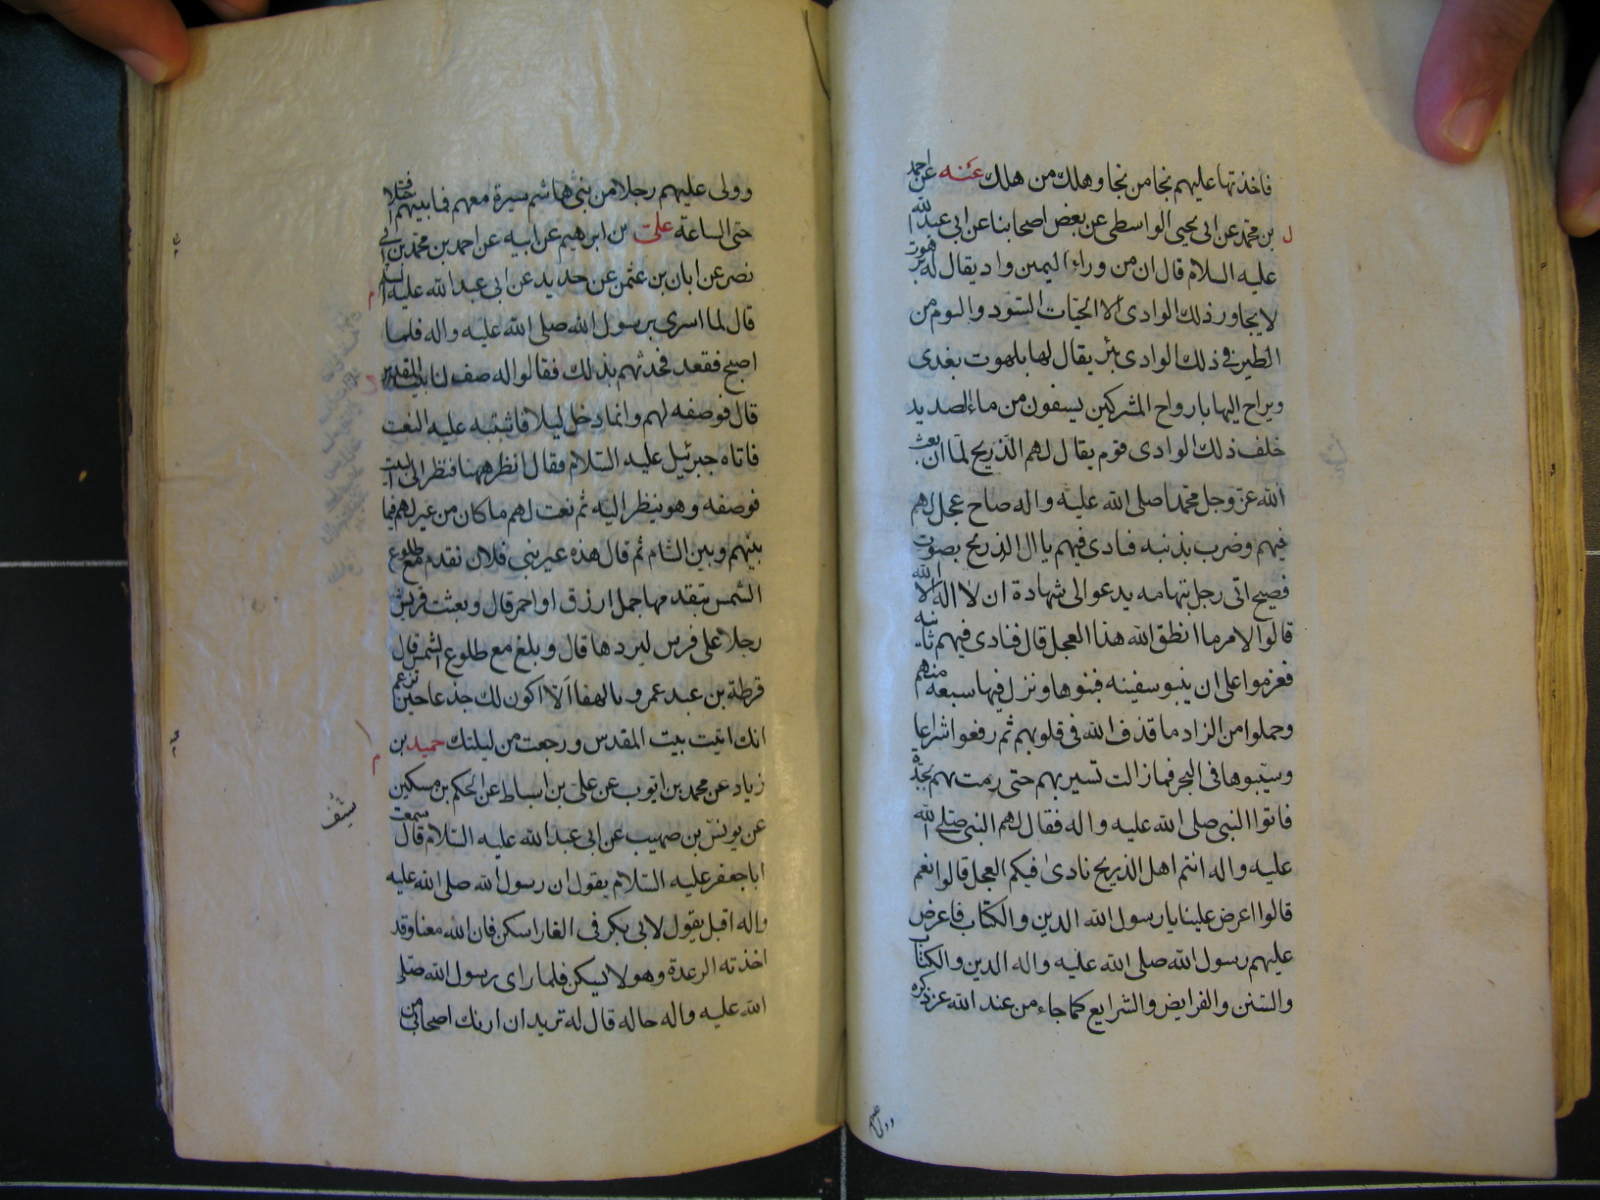 فاخذتها عليهم نجا من نجا وهلك من هلك عنه عن احمد
بن محمد عن ابى يحيى الواسطى عن بعض اصحابنا عن ابى عبد الله
عليه السلام قال ان من وراء اليمين واد يقال له برهوت
لا يجاور ذلك الوادى الا الحيات السود والبوم من
الطين فى ذلك الوادى بئر يقال لها بلهوت يغدى
ويراح اليها بارواح المشركين يسقون من ماء الصديد
خلف ذلك الوادى قوم يقال لهم الذريح لما ان بعث
الله عز وجل محمدا صلى الله عليه واله صاح عجل لهم
فيهم وضرب بذنبه فنادى فيهم يا ال الذريح بصوت
فصيح اتى رجل بتهامه يدعو الى شهادة ان لا اله الا الله
قالوا لامر ما انطق الله هذا العجل قال فنادى فيهم ثانيه
فعزموا على ان يبنو سفينه فبنوها ونزل فيها سبعه منهم
وحملوا من الزاد ما قذف الله فى قلوبهم ثم رفعوا شراعا
وسيبوها فى البحر فما زالت تسير بهم حتى رمت بهم بجدة
فاتوا النبى صلى الله عليه واله فقال لهم النبى صلى الله
عليه واله انتم اهل الذريح نادى فيكم العجل قالوا نعم
قالوا اعرض علينا يا رسول الله الدين والكتاب فاعرض
عليهم رسول الله صلى الله عليه واله الدين والكتاب
والسنن والفرايض والشرايع كما جاء من عند الله عز ذكره
وولى عليهم
وولى عليهم رجلا من بنى هاشم سيره معهم فما بينهم اختلاف
حتى الساعة على بن ابرهيم عن ابيه عن احمد بن محمد بن ابى
نصر عن ابان بن عثمن عن حديد عن ابى عبد الله عليه السلام
قال لما اسرى برسول الله صلى الله عليه واله فلما
اصبح فقعد فحدثهم بذلك فقالوا له صف لنا بيت المقدس
قال فوصفه لهم وانما دخل ليلا فاشتبه عليه النعت
فاتاه جبرئيل عليه السلام فقال انظر ههنا فنظر الى البيت
فوصفه وهو ينظر اليه ثم نعت لهم ما كان من عير لهم فيما
بينهم وبين الشام ثم قال هذه عير بنى فلان تقدم مع طلوع
الشمس يتقدمها جمل ارزق او احمر قال وبعثت قريش
رجلا على فرس ليردها قال وبلغ مع طلوع الشمس قال
قرطة بن عبد عمرو يا لهفا الا اكون لك جذعا حين تزعم
انك اتيت بيت المقدس ورجعت من ليلتك حميد بن
زياد عن محمد بن ايوب عن على بن اسباط عن الحكم بن مسكين
عن يونس بن صهيب عن ابى عبد الله عليه السلام قال سمعت
ابا جعفر عليه السلام يقول ان رسول الله صلى الله عليه
واله اقبل يقول لابى بكر فى الغار اسكن فان الله معنا وقد
اخذته الرعدة وهو لا يسكن فلما راى رسول الله صلى
الله عليه واله حاله قال له تريد ان اريك اصحابى من